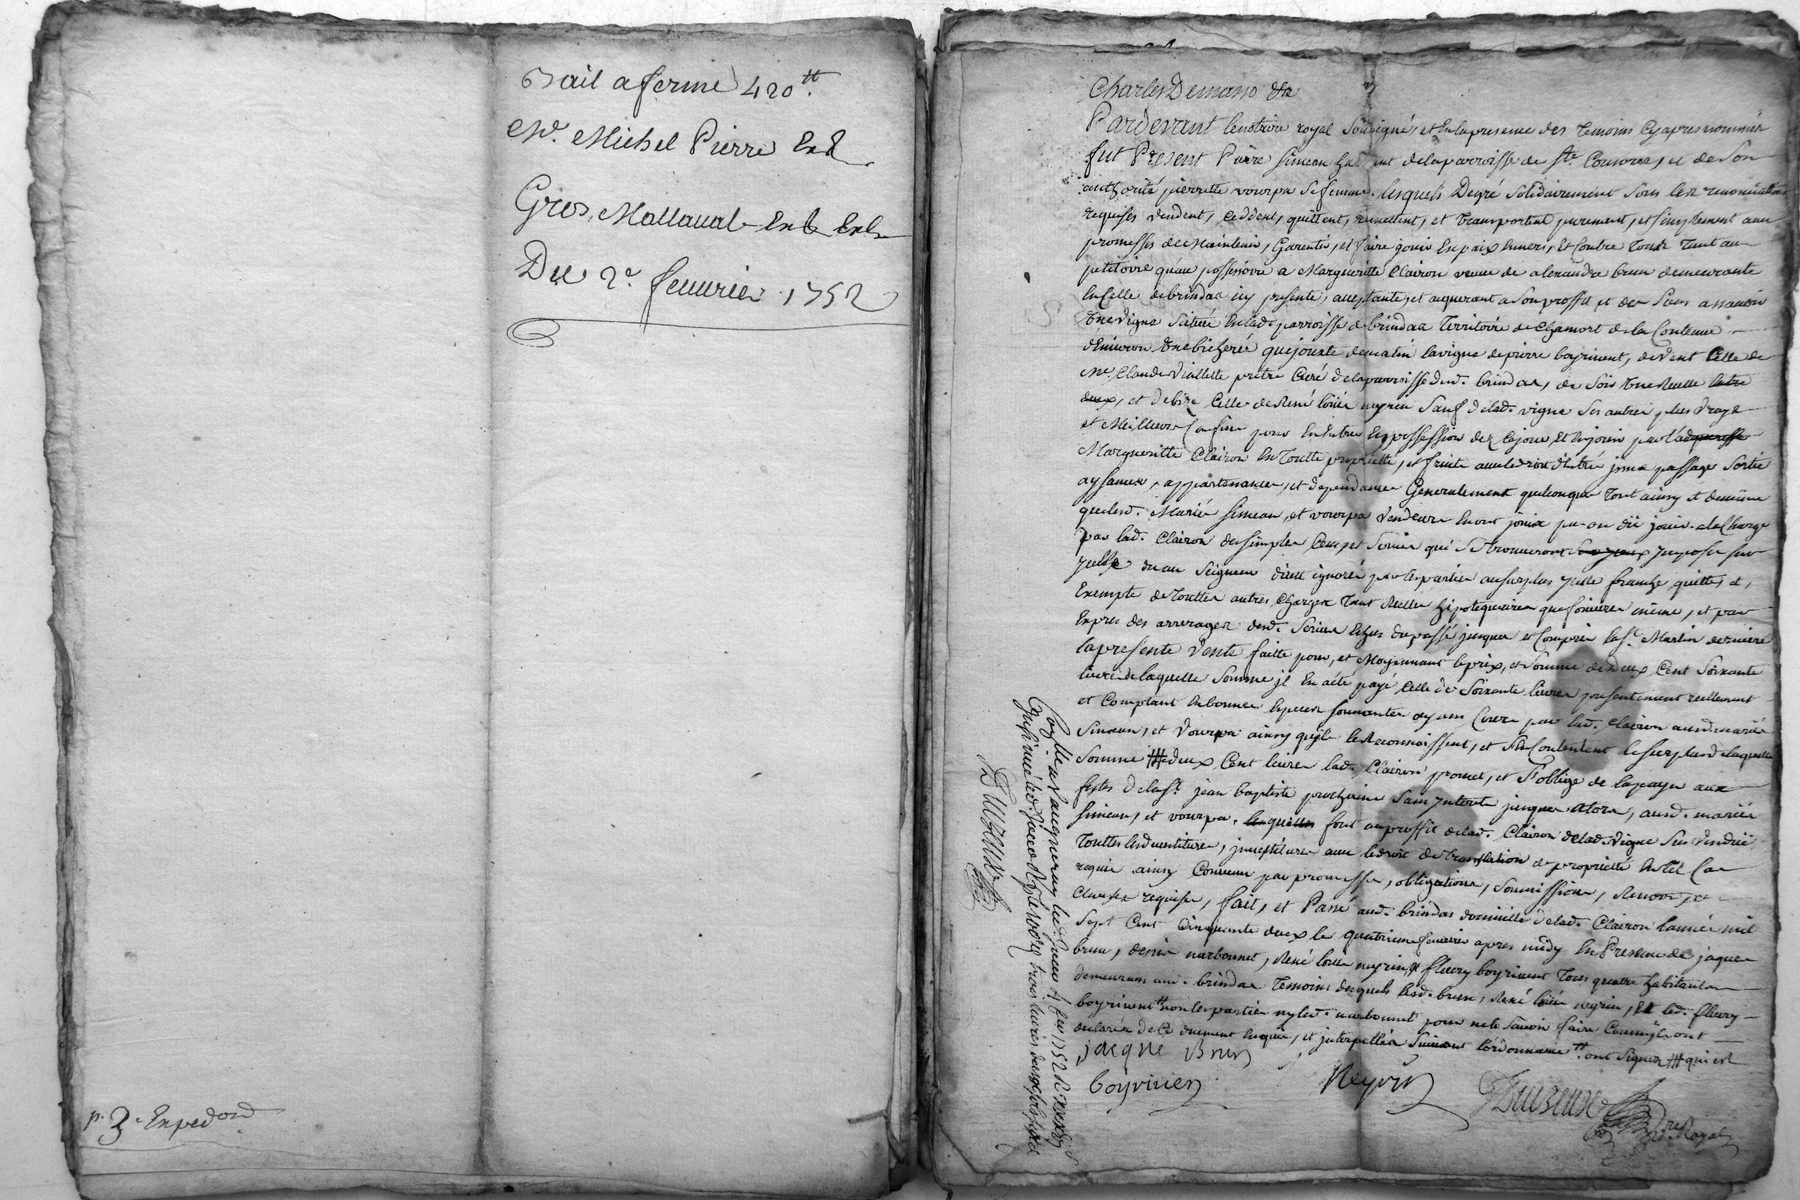 Bail a ferme 420ᵗᵗ
Mʳ. Michel Pierre
Gros, Mollaval
Du 2ᵉ feuvrier 1752
p. 3ᵉ Exped
Charles Demano
Pardevant le notaire royal Soûsigné, et En la presence des temoins Cy apres nommés
fut Present Pierre Simean habitant de la parroisse de Ste. Consorce, et de Son
authorité pierrette vourpa Sa femme, lesquels Degré Solidairement Sous les renonciations
requises vendent, Ceddent, quittent, remettent, et transportent purement, et simplement avec
promesses de Maintenir, Garentir, et faire jouir En paix Envers, Et Contre Tous Tant au
petitoire qu'au possessoire a Margueritte Clairon veuve de alexandre brun demeurante
En Celle de brindas icy presente, acceptante, et aquerant a Son proffit, et des Siens assavoir
Une Vigne Scituée En lad. parroisse de brindas Territoire de Chamort de la Contenue
d'Environ Une bicheré que jouxte de matin la vigne de pierre boyrivent, de Vent Celle de
Mre. Claude Viallette pretre Curé de la parroisse dud. brindas, de Soir Une Ruelle
et de bize Celle de René loüis neyrin Sauf de lad. vigne Ses autres plus vrays
et Meilleurs Confins pour En Entrer En possession dez Ce jour, Et En jouir par
Margueritte Clairon En Toutte proprietté, et fruits avec droits d'Entrée passage Sortie
aysances, appartenances, et dependances Generalement quelconques Tout ainsy et de même
que lesd. Mariés Simean, et vourpa Vendeurs En ont jouis pu ou dû jouir. a la Charge
par lad. Clairon du Simple Cens, et Servis qui Se trouveront Imposés Sur
du au Seigneur direct ignoré par les parties au Surplus franche quitte, et
Exempte de Touttes autres Charges Tant Reelles hipotequaires que foncieres même, et par
Exprés des arrerages desd. Servis Echus du passé jusques et Compris la St. Martin derniere
la presente Vente faitte pour, et Moyennant le prix, et Somme de deux Cent Soixante
livres de laquelle Somme il En a été payé Celle de Soixante livres presentement reellement
et Comptant En bonnes Especes Sonnantes ayant Cours par lad. Clairon auxd. mariés
Simean, et Vourpa ainsy qu'ils le Reconnoissent, et S'En Contentent le Surplus de laquelle
Somme deux Cent livres lad. Clairon promet, et S'oblige de la payer aux
festes de la St. jean baptiste prochaine Sans Interets jusques alors, auxd. mariés
Simean, et vourpa, font au proffit de lad. Clairon de lad. Vigne Sus Vendüe
Touttes les devestiture, investiture avec le droit de translation de proprietté En tel Cas
requis ainsy Convenu par promesses, obligations, Soumissions, Renon, et
Clauses requises, fait, et Passé aud. brindas domicille de lad. Clairon l'année mil
Sept Cent Cinquante deux le quatrieme feuvrier apres midy En Presence de jaques
brun, denis narbonnet, René loüis neyrin, fleury boyrivent Tous quatre habitants
demeurans aud. brindas Temoins desquels lesd. brun, René loüis neyrin, Et led. fleury
boyrivent non les parties ny led. narbonnet pour ne le Savoir faire Comme ils ont
declarés de Ce duement Enquis, et interpellés Suivant l'ordonnance ont Signés
jacque Brun
boyriven
Neyrin
Duzeuse
Nore. Royal
Conle a Vaugneray le Jeu 4 feu 1752
trois livres douze sols
Duzeuse